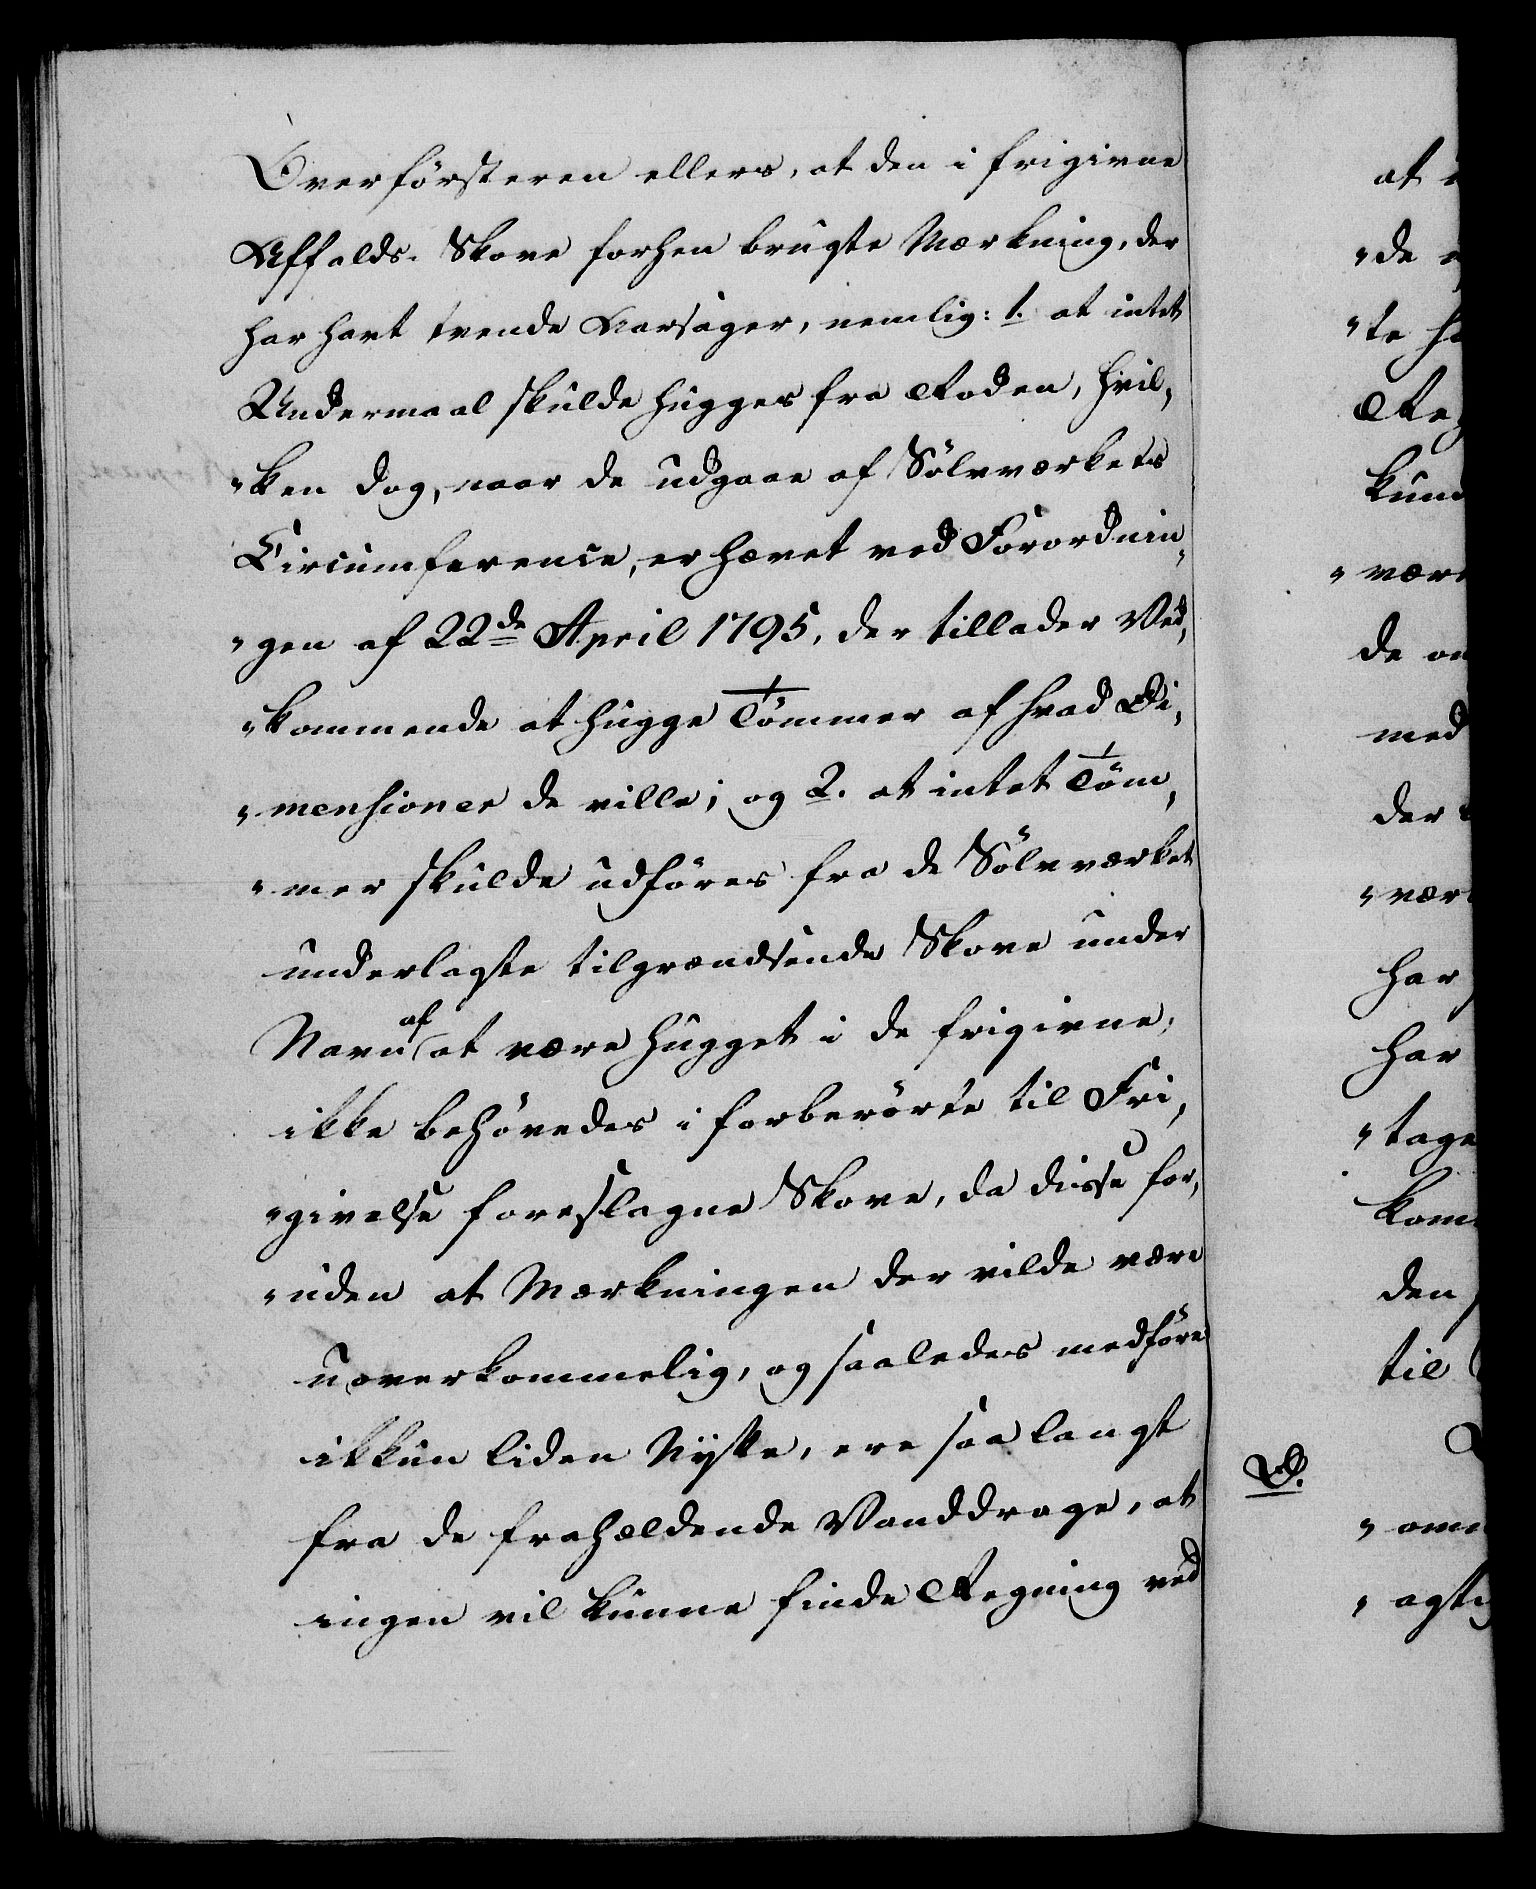 Overförsteren ellers, at den i frigivne
Affalds-Skove forhen brugte Mærkning, der
har havt tvende Aarsager, nemlig: 1. at intet
Undermaal skulde hugges fra Roden, hvil-
"ken dog, naar de udgaae af Sölvværkets
Circumference, er hævet ved Forordnin-
"gen af 22de April 1795, der tillader Ved-
"kommende at hugge Tömmer af hvad Di-
"mensioner de ville; og 2. at intet Töm-
"mer skulde udföres fra de Sölvværket
underlagte tilgrændsende Skove under
Navn af at være hugget i de frigivne,
ikke behövedes i forberörte til Fri-
"givelse foreslagne Skove, da disse for-
"uden at Mærkningen der vilde være
uoverkommelig, og saaledes medföre
ikkun liden Nytte, ere saa langt
fra de frahældende Vanddrage, at
ingen vil kunne finde Regning ved
at
"de
"te
Reg
kun
"vær
de
med
der
"vær
har
har
"tage
kom
den
til
D.
"om
"agti